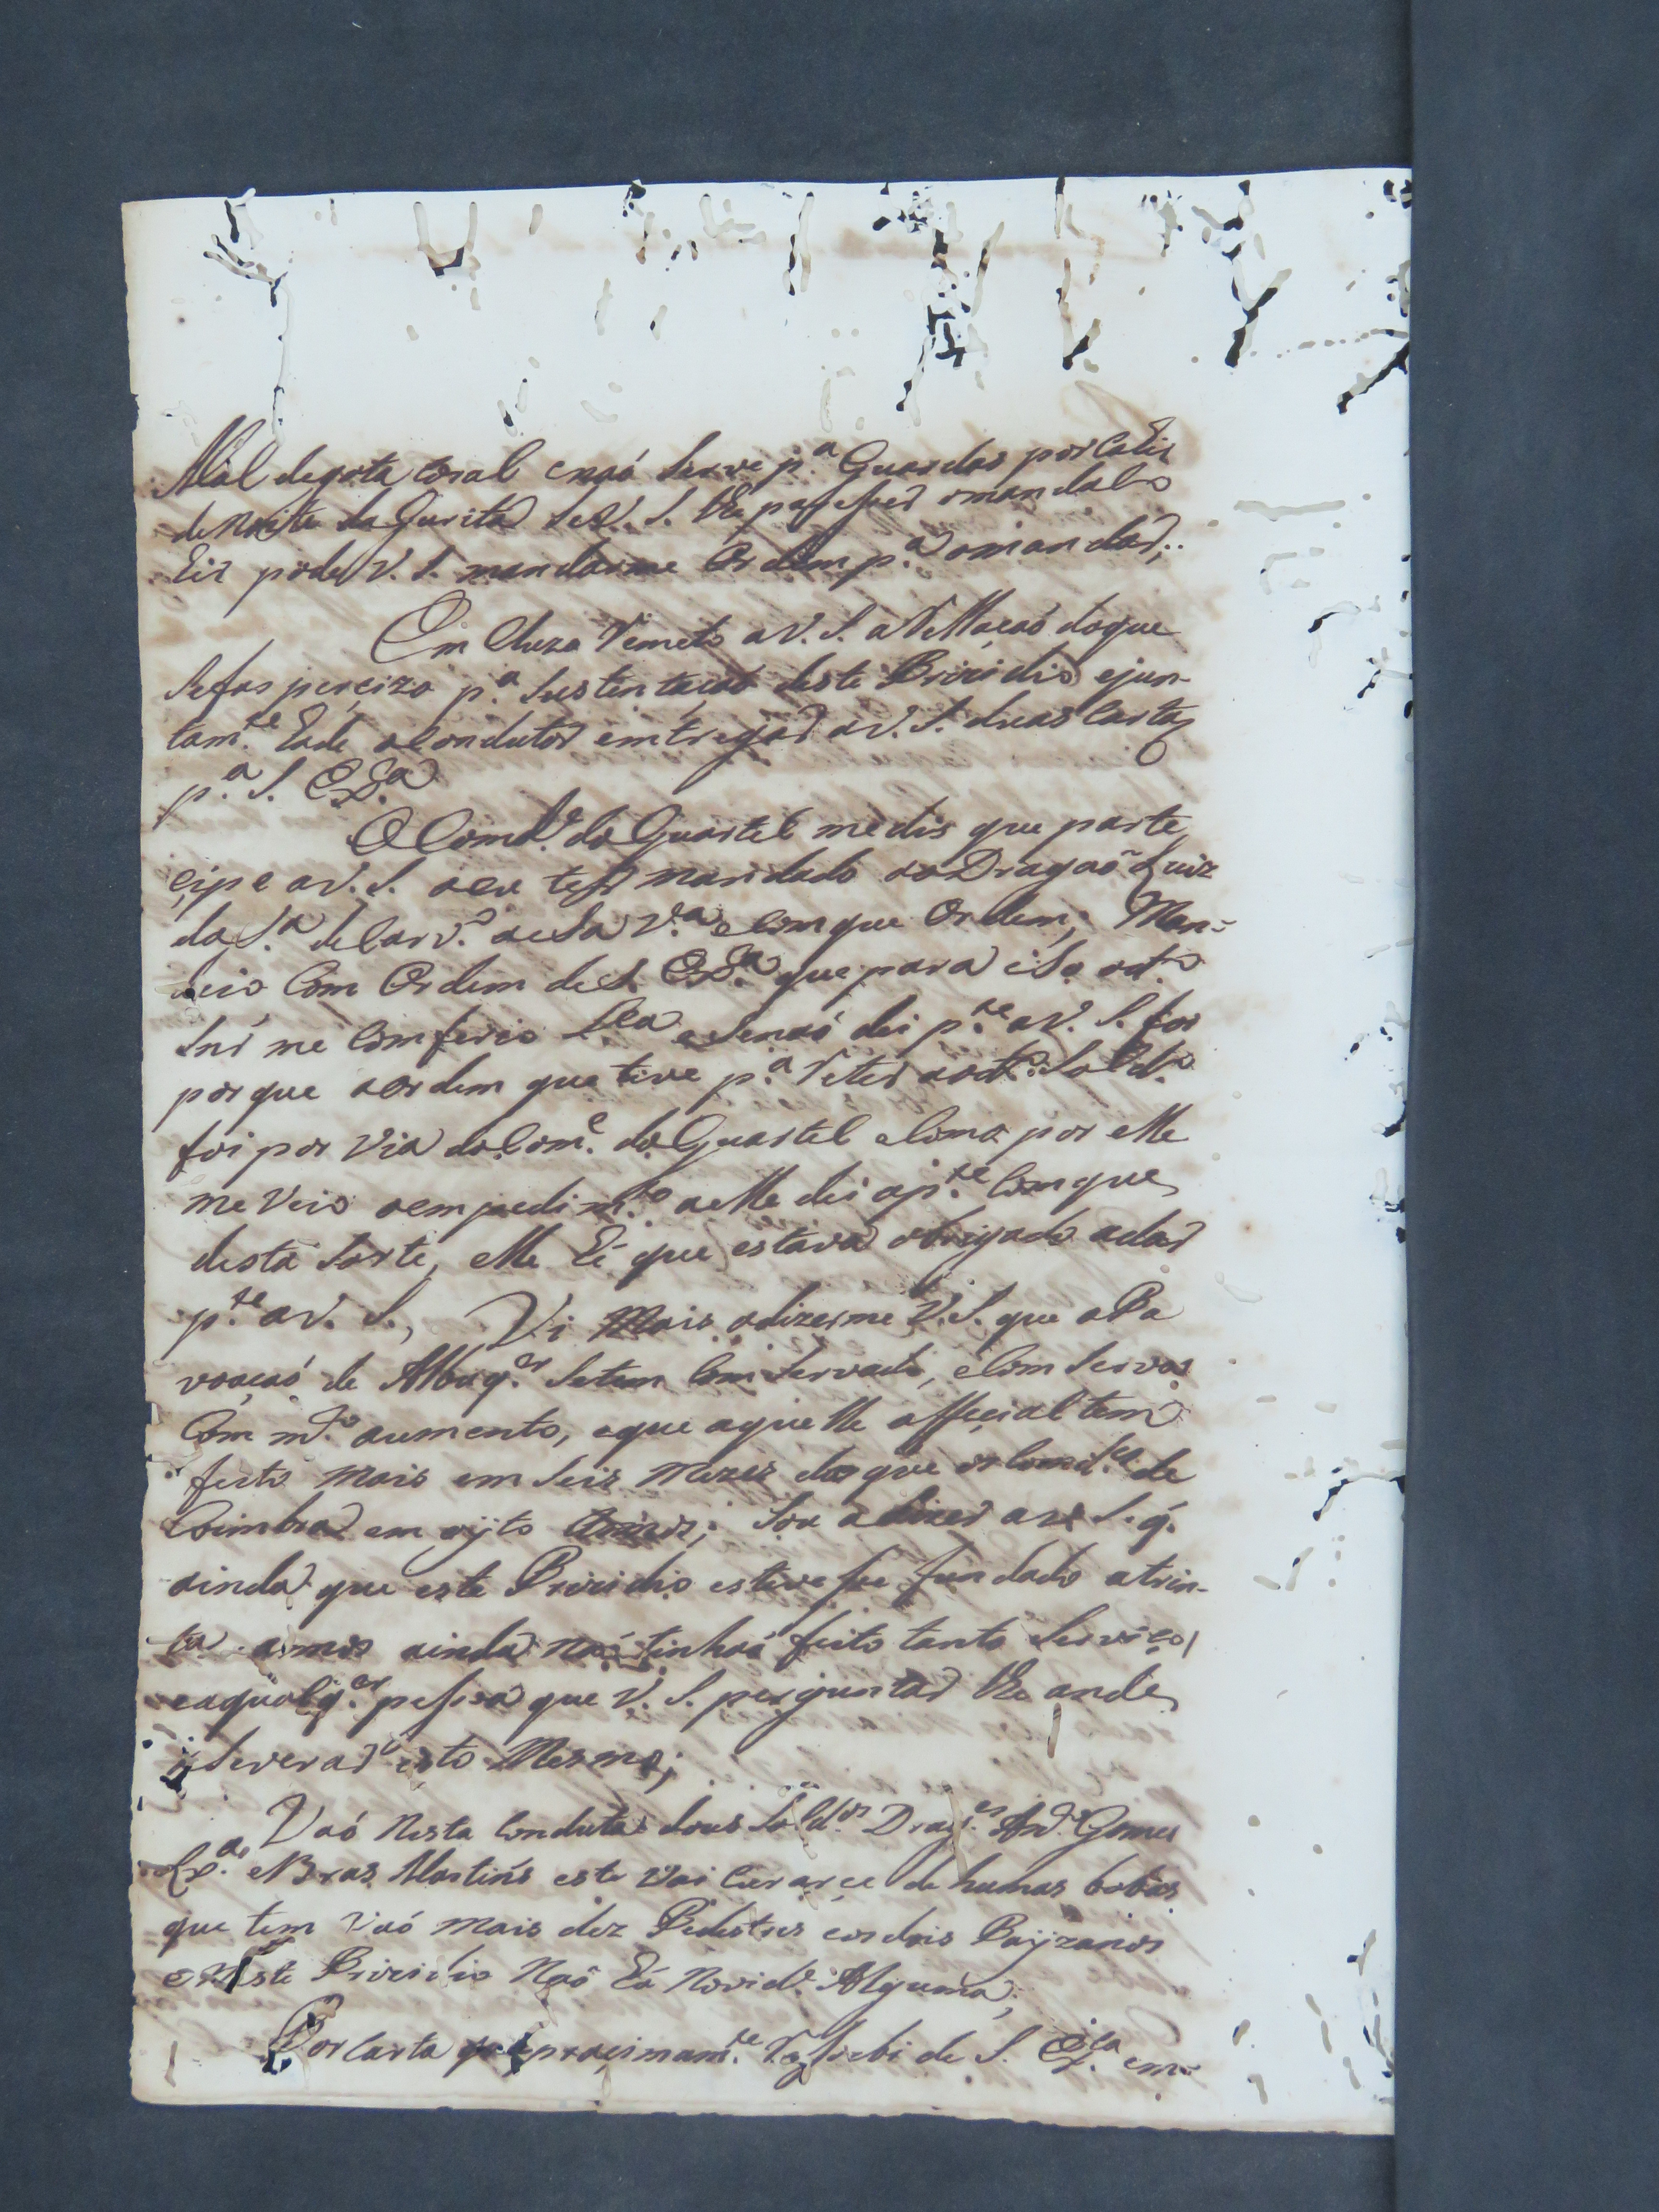 Mal degota coral enaó Serve p.ª Guardas por Caír
de Noite da Guritá Se V. S. lhe pareser omandalo
Eir pode V. S. mandarme Ordem p.ª omandar;
Em Cluzo Remeto a V. S. aRellaçaó doque
Sefas perçizo p.ª Sustentaçaó deste Prizidio ejun-
tam.te Eade oCondutor emtregar a V. S. duas Cartas
p.ª S. Ex.ª
O Com.de do Quartel medis que parte,
çipe a V. S. oeu ter mandado ao Dragaõ Luiz
da S.ª de Carv.º aesa V.ª eComque Ordem; Man-
deio Com Ordem de S. Ex.ª que para iSo od.º
Snr me Comferio L.ça eSenaó dei p.te a V. S. foi
porque aordem que tive p.ª Reter aod.º Sold.º
foi por via do Com.e do Quartel eComo por elle
me Veio oempedim.to aelle dei ap.te Comque,
desta Sorte, elle Eé que estava obrigado adar
p.te a V. S., Vi Mais adizerme V. S. que aPa
voaçaó de Albuq.er Setem Comservado, eComServa
Com m.to aumento, eque aquelle offeçial tem
feito Mais em Seis Mezes doque os Comd.es de
Coimbra em ojto Annos; Sou adizer a V. S. q.
ainda que este Prizidio estivese fundado atrin-
ta annos ainda naó tinhaó feito tanto Serviço,
eaqualq.er pesoa que V. S. perguntar lhe ande,
aSeverar isto Mesmo;
Vaó Nesta Conduta dous Sold.os Drag.es And.e Gomes
eBras Martins este Vai Curarçe de humas bobas
que tem Vaó Mais dez Pedestres eosdois Payzanos
eNeste Prizidio Naõ Eá Novid.e Alguma;
Por Carta que proçimam.te Resebi de S. Ex.ça em-